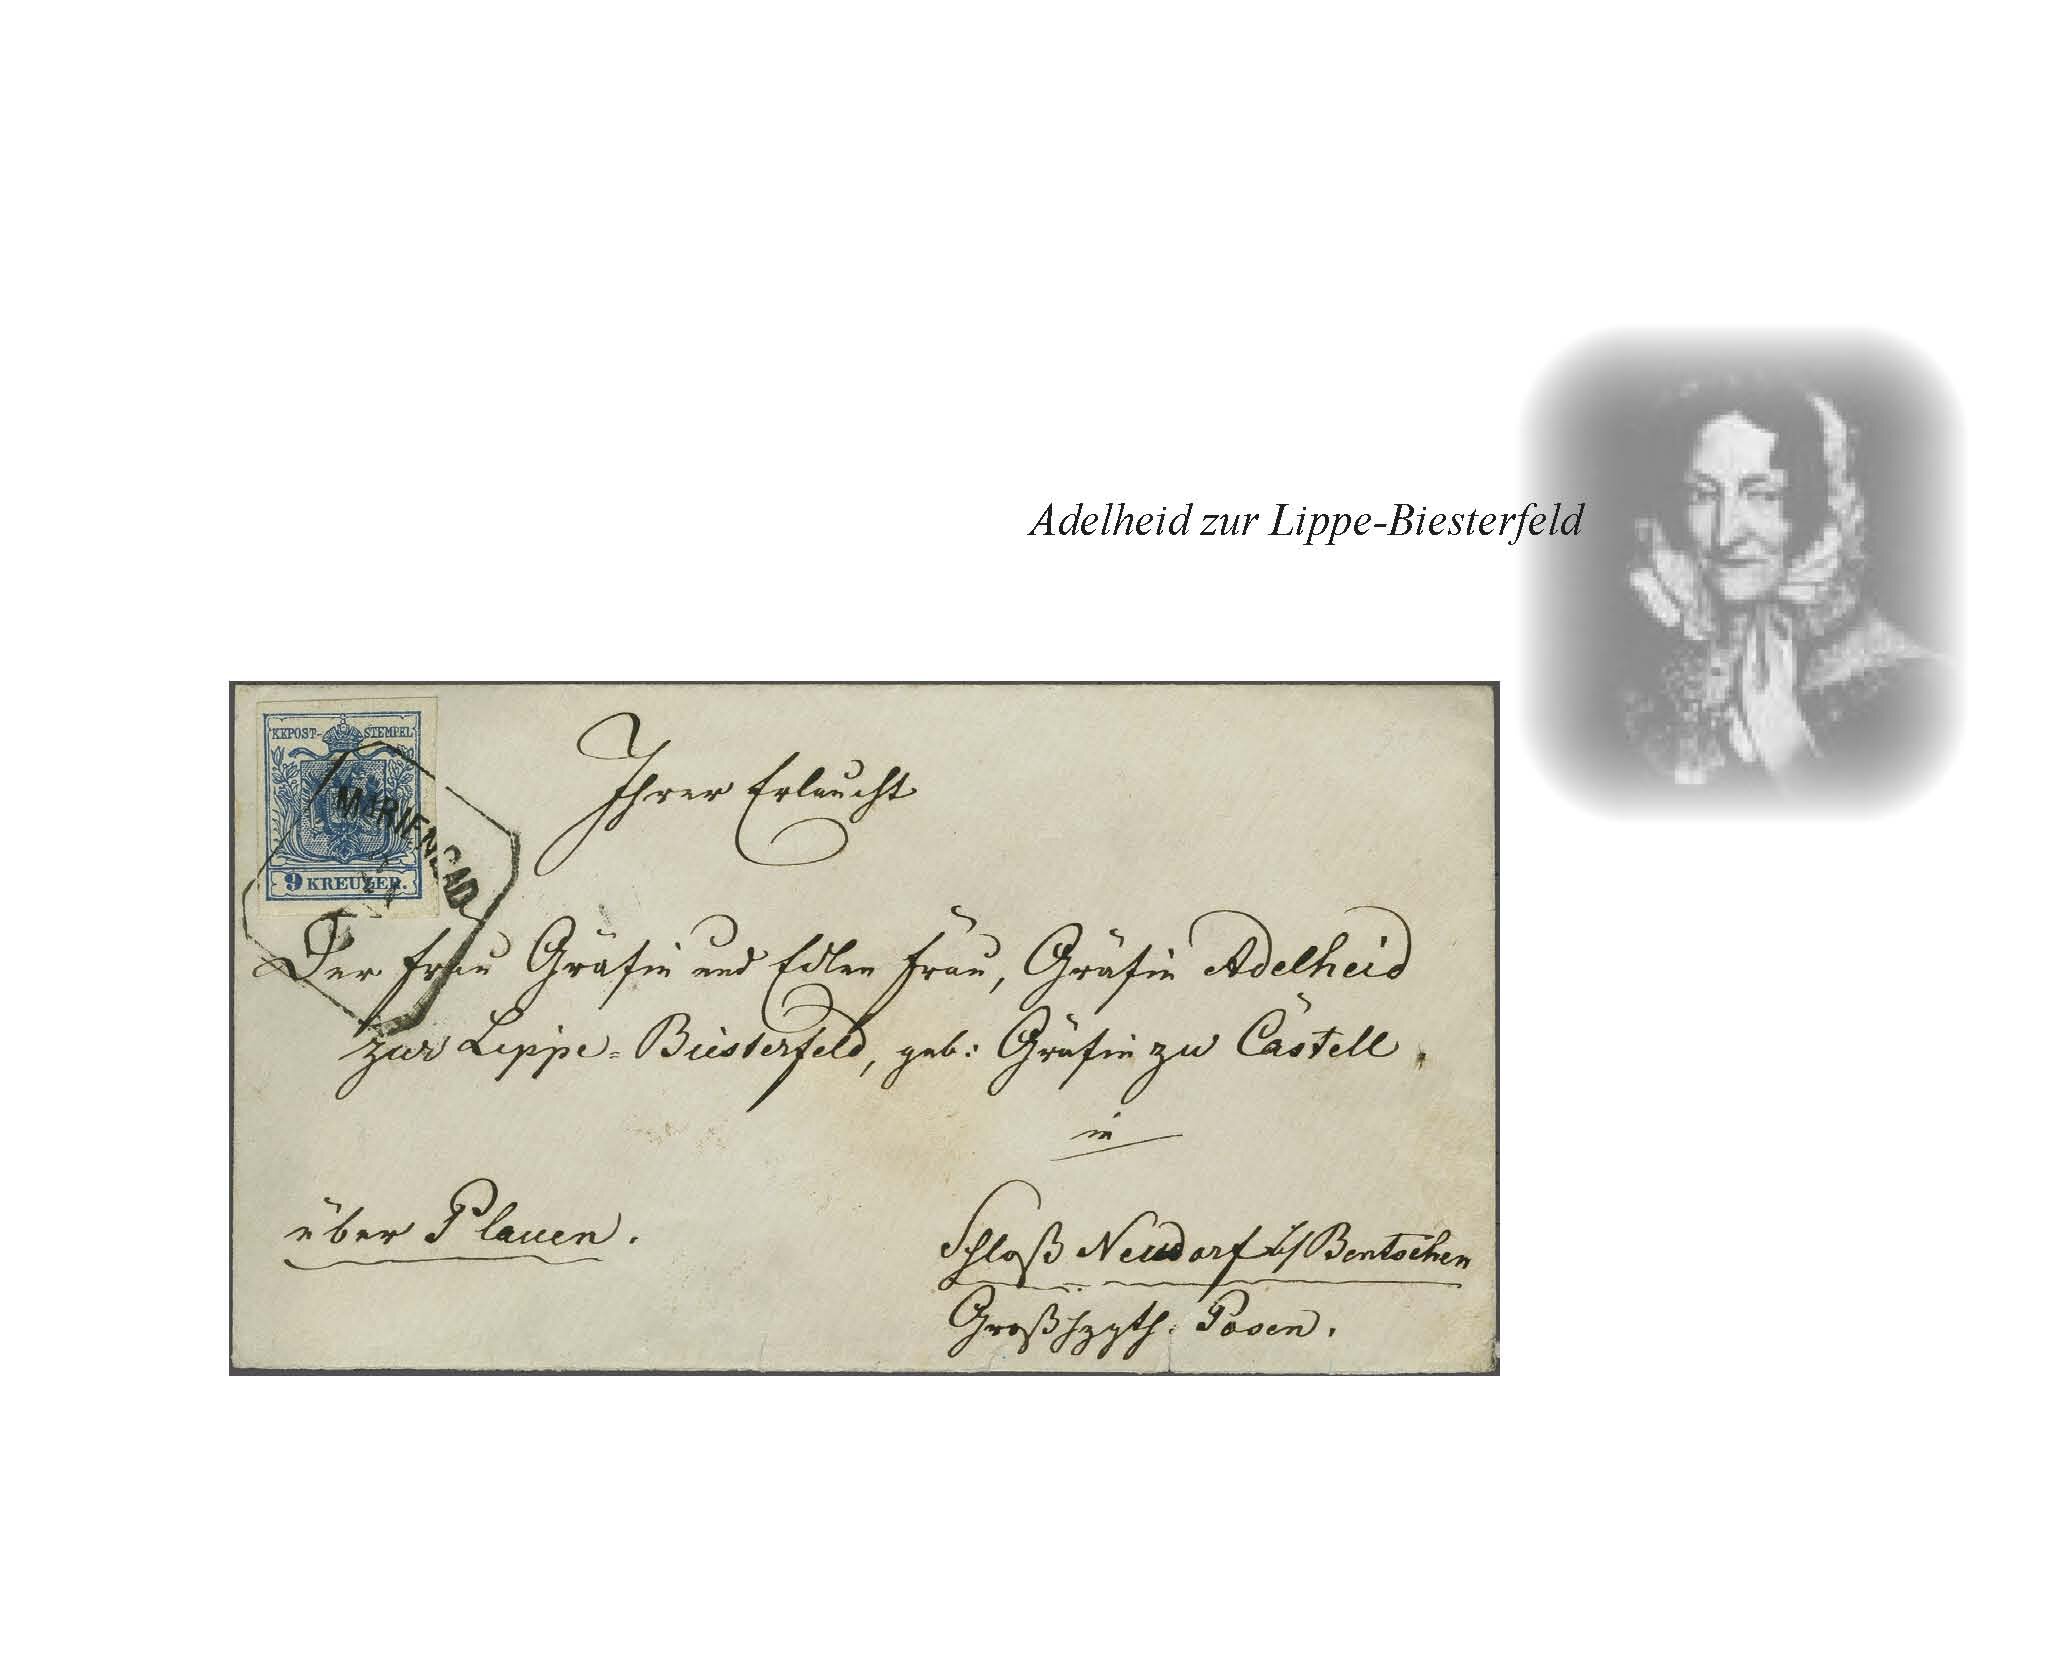 Adelheid zur Lippe-Biesterfeld
KKPOST-STEMPEL
MARIENBAD
9 KREUZER.
Ihrer Erlaucht
Der Frau Gräfin und Edlen Frau, Gräfin Adelheid
zur Lippe=Biesterfeld, geb: Gräfin zu Castell.
in
über Plauen.
Schloß Neudorf b/Bentschen
Großhzgth: Posen.